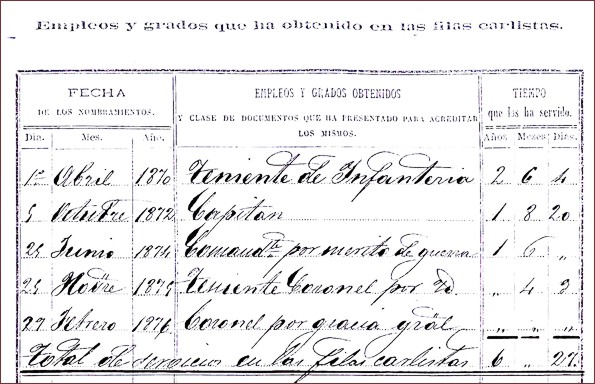 Empleos y grados que ha obtenido en las filas carlistas.
FECHA DE LOS NOMBRAMIENTOS. EMPLEOS Y GRADOS OBTENIDOS Y CLASE DE DOCUMENTOS QUE HA PRESENTADO PARA ACREDITAR LOS MISMOS. TIEMPO que las ha servido.
Dia. Mes. Año. Años. Mezes. Dias.
1º Abril 1870 Teniente de Infanteria 2 6 4
5 Octubre 1872 Capitan 1 8 20
25 Junio 1874 Comandte por merito de guerra 1 6 „
25 1875 Teniente Coronel por „ 4 3
27 Febrero 1876 Coronel por gracia gräl „ „ „
Total de servicios en las filas carlistas 6 „ 27.